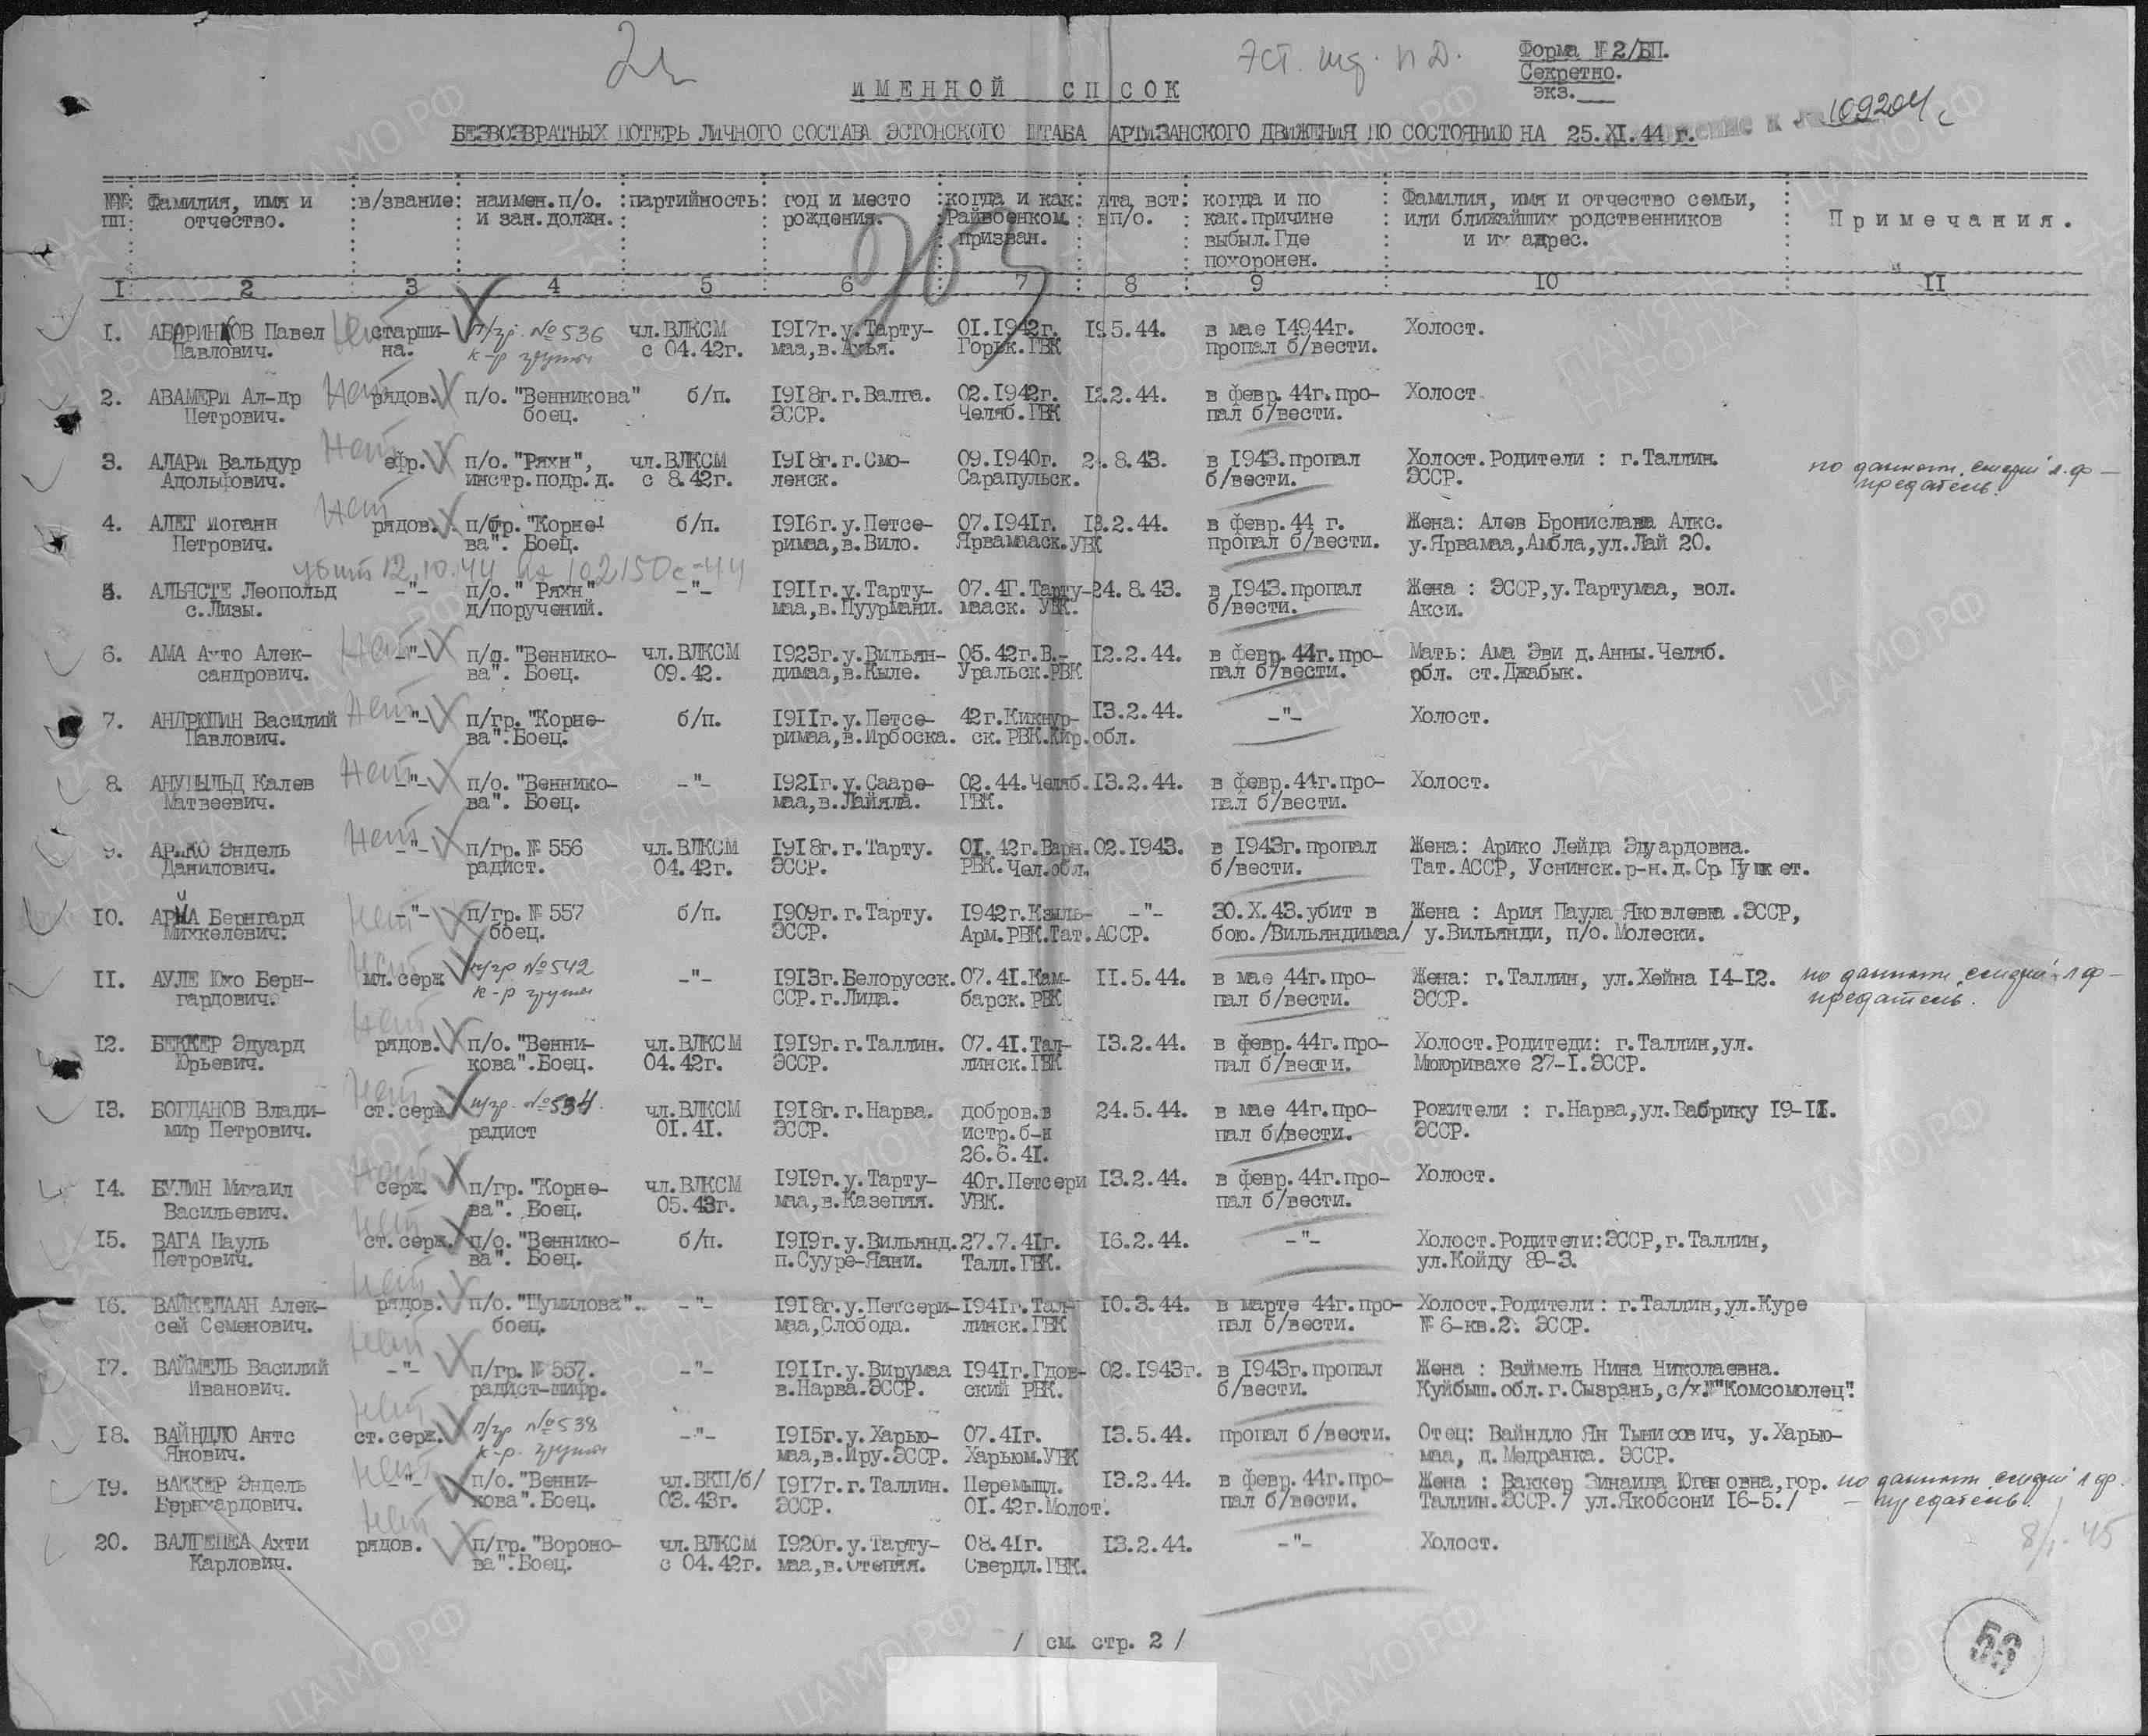 Эст. шд. п Д.
Форма № 2/БП.
Секретно.
экз.___
109204с
ИМЕННОЙ СПИСОК
БЕЗВОЗВРАТНЫХ ПОТЕРЬ ЛИЧНОГО СОСТАВА ЭСТОНСКОГО ШТАБА АРТИЗАНСКОГО ДВИЖЕНИЯ ПО СОСТОЯНИЮ НА 25.XI.44 г.
№№ пп: Фамилия, имя и отчество. : в/звание: наимен.п/о. и зан.должн.: партийность: год и место рождения. : когда и как. Райвоенком. призван. : дта вст. в п/о. : когда и по как.причине выбыл.Где похоронен. : Фамилия, имя и отчество семьи, или ближайших родственников и их адрес. : Примечания.
I 2 3 4 5 6 7 8 9 10 II
I. АБРИНКОВ Павел нет старши- п/гр. № 536 чл.ВЛКСМ 1917г.у.Тарту- 01.1942г. 19.5.44. в мае 14944г. Холост.
Павлович. на. к-р группы с 04.42г. маа,в.Ахья. Горьк.ГВК пропал б/вести.
2. АВАМЕРИ Ал-др Нет рядов. п/о."Венникова" б/п. 1918г.г.Валга. 02.1942г. 12.2.44. в февр.44г.про- Холост.
Петрович. боец. ЭССР. Челяб.ГВК пал б/вести.
3. АЛАРИ Вальдур Нет ефр. п/о."Ряхн", чл.ВЛКСМ 1918г.г.Смо- 09.1940г. 24.8.43. в 1943.пропал Холост.Родители : г.Таллин. по данным
Адольфович. инстр.подр.д. с 8.42г. ленск. Сарапульск. б/вести. ЭССР. предатель.
4. АЛЕТ Иоганн Нет рядов. п/гр."Корне- б/п. 1916г.у.Петсе- 07.1941г. 13.2.44. в февр.44 г. Жена: Алев Бронислава Алкс.
Петрович. ва". Боец. римаа,в.Вило. Ярвамааск.УВК пропал б/вести. у.Ярвамаа,Амбла,ул.Лай 20.
убит 12.10.44 102150с-44
5. АЛЬЯСТЕ Леопольд -"- п/о." Ряхн" -"- 1911г.у.Тарту- 07.41.Тарту- 24.8.43. в 1943.пропал Жена : ЭССР,у.Тартумаа, вол.
с.Лизы. д/поручений. маа,в.Пуурмани. мааск. УВК. б/вести. Акси.
6. АМА Ахто Алек- Нет -"- п/о."Веннико- чл.ВЛКСМ 1923г.у.Вильян- 05.42г.В.- 12.2.44. в февр.44г.про- Мать: Ама Эви д.Анны.Челяб.
сандрович. ва". Боец. 09.42. димаа,в.Кыле. Уральск.РВК пал б/вести. обл. ст.Джабык.
7. АНДРЮШИН Василий Нет -"- п/гр."Корне- б/п. 1911г.у.Петсе- 42г.Кикнур- 13.2.44. -"- Холост.
Павлович. ва".Боец. римаа,в.Ирбоска. ск.РВК.Кир.обл.
8. АНУПЫЛЬД Калев Нет -"- п/о."Веннико- -"- 1921г.у.Сааре- 02.44.Челяб. 13.2.44. в февр.44г.про- Холост.
Матвеевич. ва". Боец. маа,в.Лайяла. ГВК. пал б/вести.
9. АРИКО Эндель Нет -"- п/гр.№ 556 чл.ВЛКСМ 1918г.г.Тарту. 01.42г.Варн. 02.1943. в 1943г.пропал Жена: Арико Лейда Эдуардовна.
Данилович. радист. 04.42г. ЭССР. РВК.Чел.обл. б/вести. Тат.АССР, Уснинск.р-н.д.Ср.
10. АРИЯ Бернгард нет -"- п/гр.№ 557 б/п. 1909г.г.Тарту. 1942г.Кзыль- -"- 30.X.43.убит в Жена : Ария Паула Яковлевна.ЭССР,
Михкелевич. боец. ЭССР. Арм.РВК.Тат.АССР. бою./Вильяндимаа/ у.Вильянди, п/о.Молески.
II. АУЛЕ Юхо Берн- Нет мл.серж. п/гр №542 -"- 1913г.Белорусск. 07.41.Кам- 11.5.44. в мае 44г.про- Жена: г.Таллин, ул.Хейна 14-12. по данным
гардович. к-р группы ССР.г.Лида. барск.РВК пал б/вести. ЭССР. предатель.
12. БЕККЕР Эдуард нет рядов. п/о."Венни- чл.ВЛКСМ 1919г.г.Таллин. 07.41.Тал- 13.2.44. в февр.44г.про- Холост.Родители: г.Таллин,ул.
Юрьевич. кова".Боец. 04.42г. ЭССР. линск.ГВК пал б/вести. Мююривахе 27-I.ЭССР.
13. БОГДАНОВ Влади- нет ст.серж. п/гр. №534. чл.ВЛКСМ 1918г.г.Нарва. добров.в 24.5.44. в мае 44г.про- Рожители : г.Нарва,ул.Вабрику 19-II.
мир Петрович. радист 01.41. ЭССР. истр.б-н пал б/вести. ЭССР.
26.6.41.
14. БУЛИН Михаил нет серж. п/гр."Корне- чл.ВЛКСМ 1919г.у.Тарту- 40г.Петсери 13.2.44. в февр.44г.про- Холост.
Васильевич. ва". Боец. 05.43г. маа,в.Казепяя. УВК. пал б/вести.
15. ВАГА Пауль нет ст.серж. п/о."Веннико- б/п. 1919г.у.Вильянд. 27.7.41г. 16.2.44. -"- Холост.Родители:ЭССР,г.Таллин,
Петрович. ва". Боец. п.Сууре-Яани. Талл.ГВК. ул.Койду 89-3.
16. ВАЙКЕЛААН Алек- нет рядов. п/о."Шумилова". -"- 1918г.у.Петсери- 1941г.Тал- 10.3.44. в марте 44г.про- Холост.Родители: г.Таллин,ул.Куре
сей Семенович. боец. маа,Слобода. линск.ГВК пал б/вести. № 6-кв.2. ЭССР.
17. ВАЙМЕЛЬ Василий нет -"- п/гр.№ 557. -"- 1911г.у.Вирумаа 1941г.Гдов- 02.1943г. в 1943г.пропал Жена : Ваймель Нина Николаевна.
Иванович. радист-шифр. в.Нарва.ЭССР. ский РВК. б/вести. Куйбыш.обл.г.Сызрань,с/х."Комсомолец".
18. ВАЙНДЛО Антс нет ст.серж. п/гр №538 -"- 1915г.у.Харью- 07.41г. 13.5.44. пропал б/вести. Отец: Вайндло Ян Тынисович, у.Харью-
Янович. к-р. группы маа,в.Иру.ЭССР. Харьюм.УВК маа, д.Медранка. ЭССР.
19. ВАККЕР Эндель нет -"- п/о."Венни- чл.ВКП/б/ 1917г.г.Таллин. Перемышл. 13.2.44. в февр.44г.про- Жена : Ваккер Зинаида Югеновна,гор. по данным
Бернхардович. кова".Боец. 03.43г. ЭССР. 01.42г.Молот. пал б/вести. Таллин.ЭССР./ ул.Якобсони 16-5./ - предатель.
20. ВАЛГЕПЕА Ахти нет рядов. п/гр."Вороно- чл.ВЛКСМ 1920г.у.Тарту- 08.41г. 13.2.44. -"- Холост.
Карлович. ва".Боец. с 04.42г. маа,в.Отепяя. Свердл.ГВК.
/ см. стр. 2 /
56